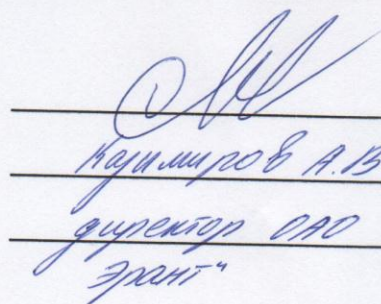 Казимиров А.В
директор ОАО
Эрант"